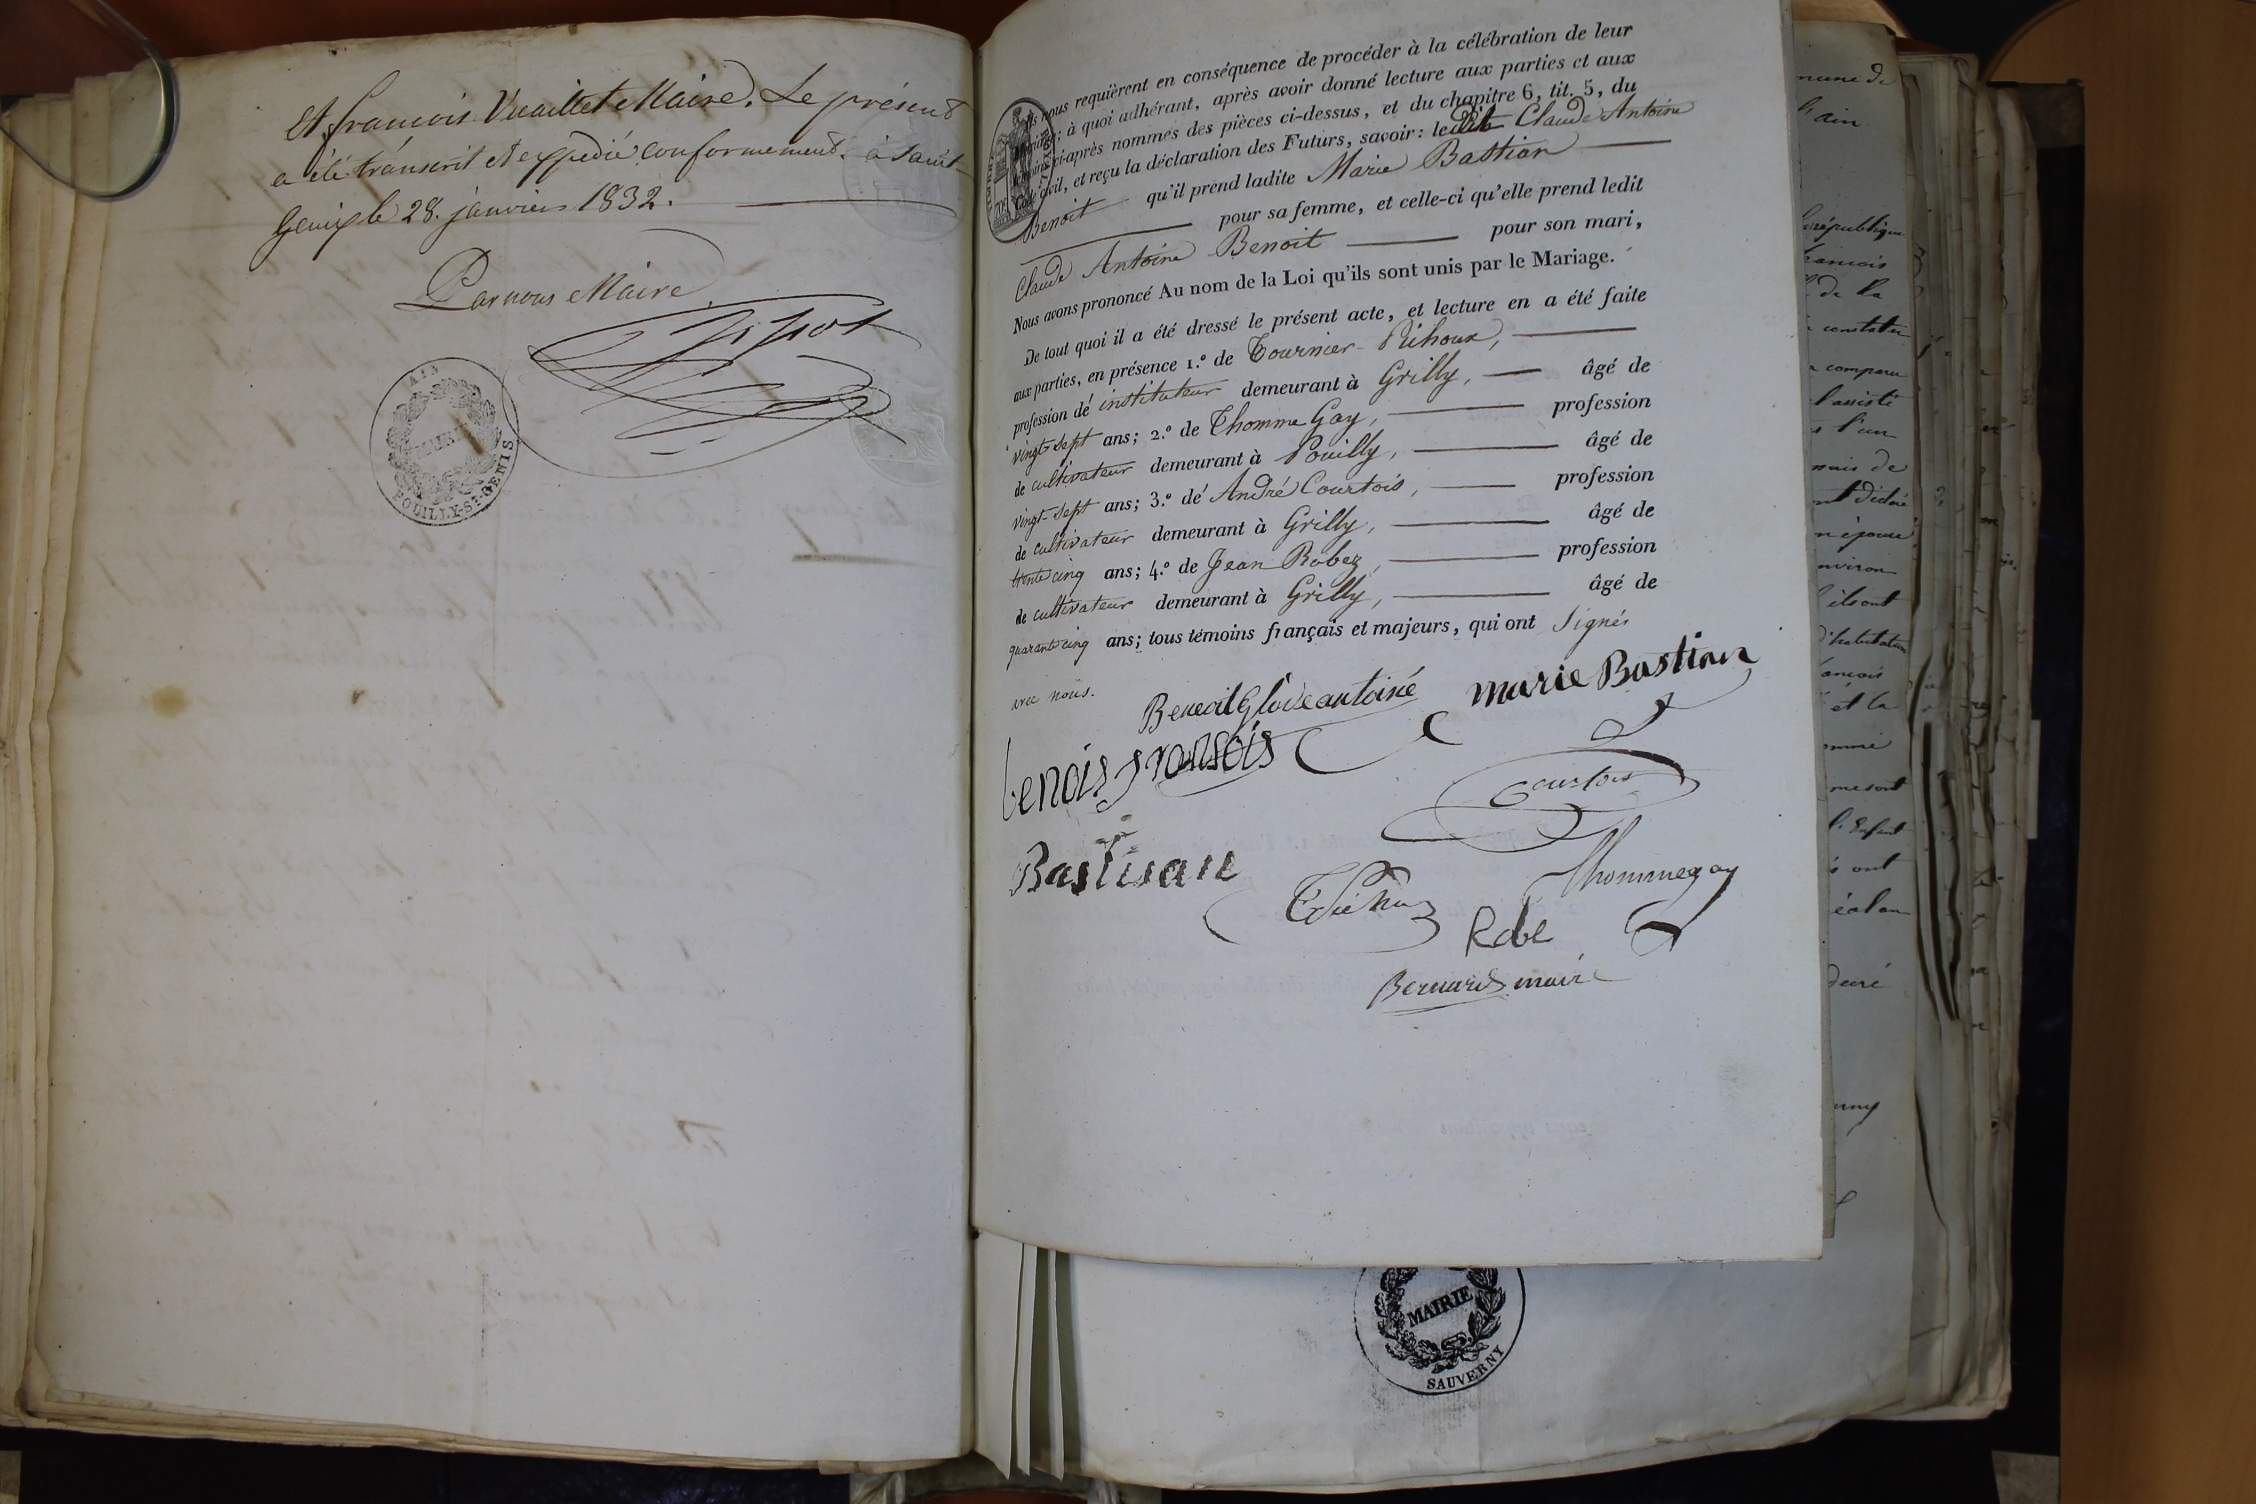 Et françois Vuaillet Maire. Le présent
a été transcrit et expédié conformement. à Saint-
Genis le 28. janvier 1832.
Par nous Maire
AIN
MAIRIE
POUILLY-ST-GENIS
nous requièrent en conséquence de procéder à la célébration de leur
à quoi adhérant, après avoir donné lecture aux parties et aux
ci-après nommés des pièces ci-dessus, et du chapitre 6, tit. 5, du
Code civil, et reçu la déclaration des Futurs, savoir: ledit Claude Antoine
Benoit qu'il prend ladite Marie Bastian
pour sa femme, et celle-ci qu'elle prend ledit
Claude Antoine Benoit pour son mari,
Nous avons prononcé Au nom de la Loi qu'ils sont unis par le Mariage.
De tout quoi il a été dressé le présent acte, et lecture en a été faite
aux parties, en présence 1.º de Tournier-Rihoux,
profession de instituteur demeurant à Grilly, âgé de
vingt-sept ans; 2.º de Thomme Gay, profession
de cultivateur demeurant à Pouilly, âgé de
vingt-sept ans; 3.º de André Courtois, profession
de cultivateur demeurant à Grilly, âgé de
trente cinq ans; 4.º de Jean Robez, profession
de cultivateur demeurant à Grilly, âgé de
quarante cinq ans; tous témoins français et majeurs, qui ont Signés
avec nous.
Benoit Glode antoine marie Bastian
benois fransois
Courtois
Bastian
Thommegay
Robe
Bernard maire
MAIRIE
SAUVERNY
mune de
l'ain
république
françois
de la
constater
comparu
l'assisté
l'un
mais de
déclaré
épouse
environ
ils ont
d'habitation
françois
et la
l'Enfant
ont